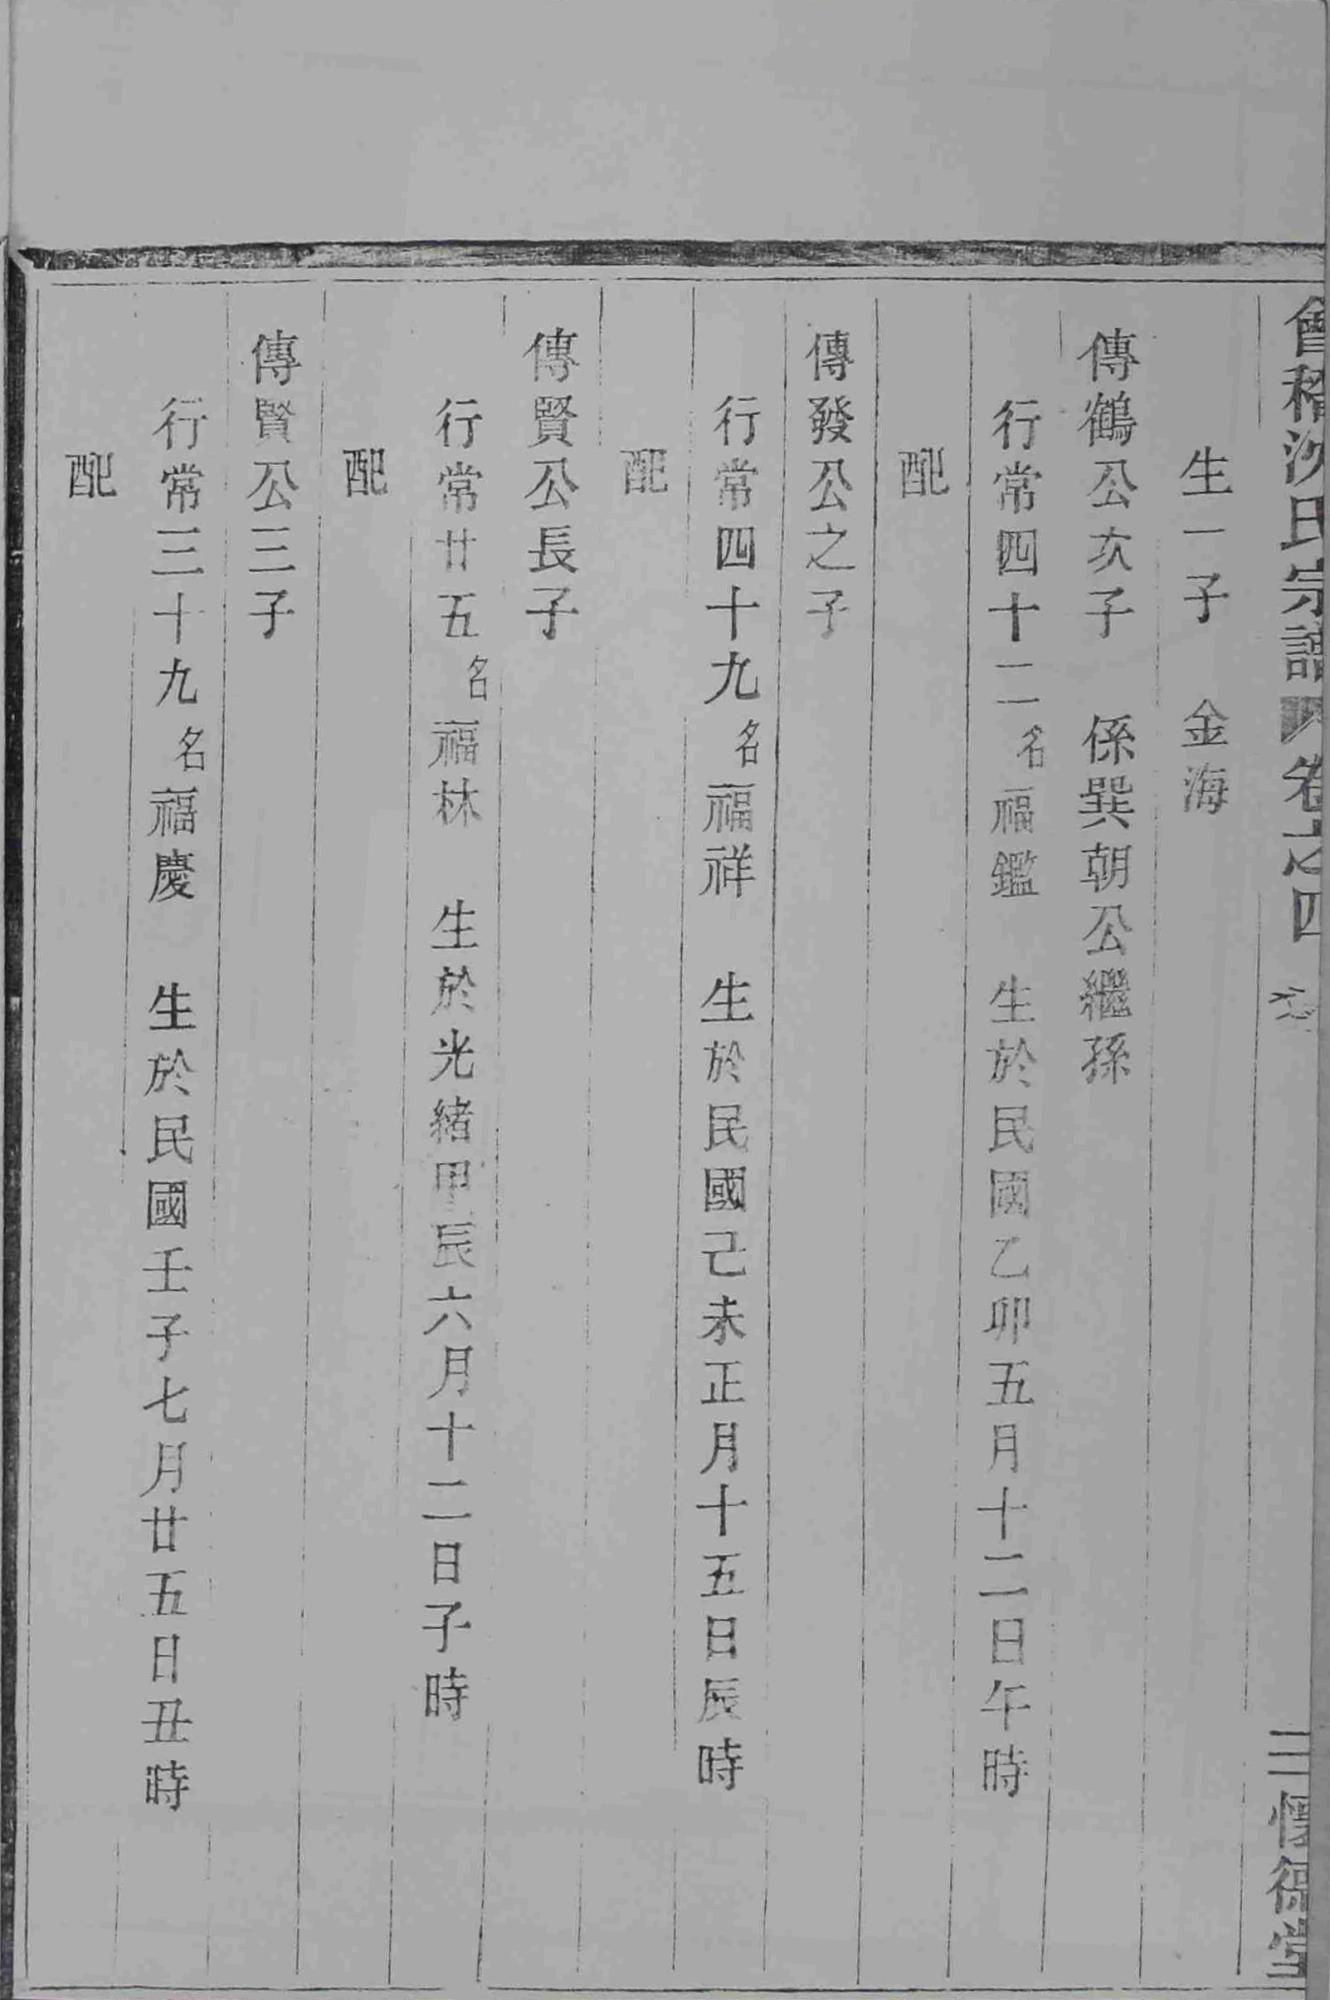 會稽沈氏宗譜 卷之四 三懷德堂
生一子 金海
傳鶴公次子 係巽朝公繼孫
行常四十二名福鑑 生於民國乙卯五月十二日午時
配
傳發公之子
行常四十九名福祥 生於民國己未正月十五日辰時
配
傳賢公長子
行常廿五名福林 生於光緒甲辰六月十二日子時
配
傳賢公三子
行常三十九名福慶 生於民國壬子七月廿五日丑時
配